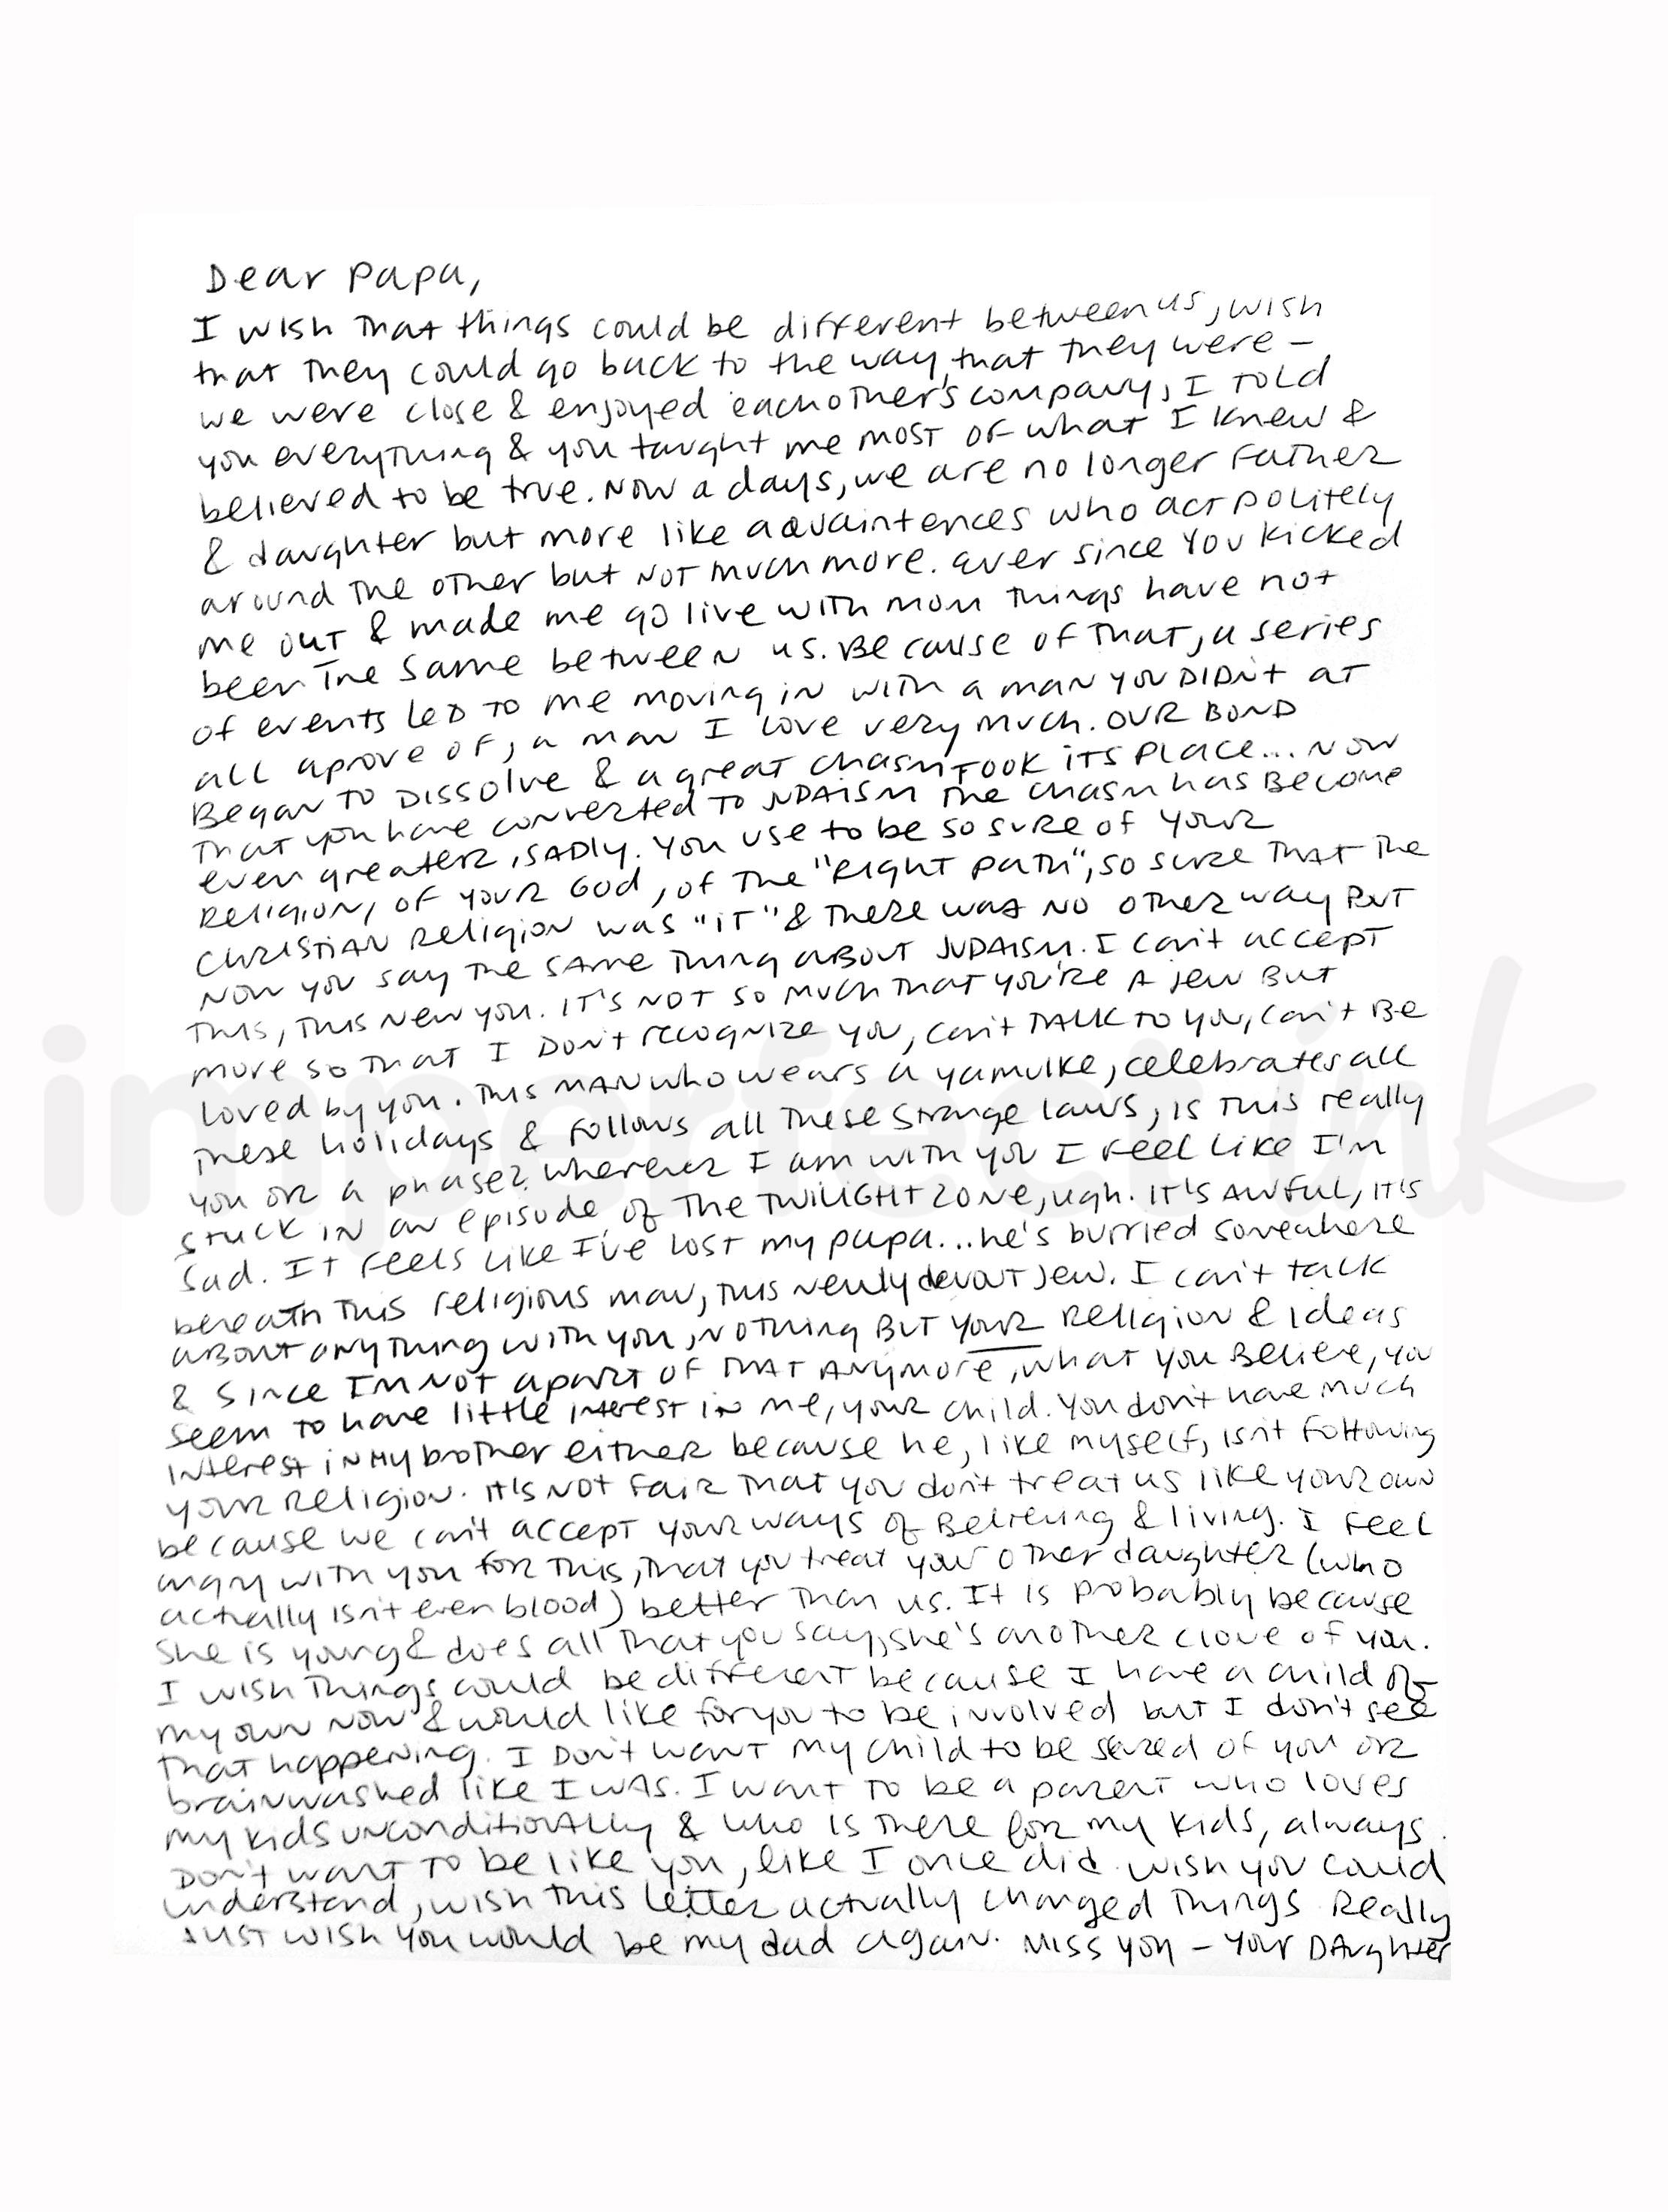 Dear Papa,
I wish that things could be different between us, wish
that they could go back to the way that they were -
we were close & enjoyed eachother's company, I told
you everything & you taught me most of what I knew &
believed to be true. Now a days, we are no longer father
& daughter but more like aquaintences who act politely
around the other but not much more. Ever since you kicked
me out & made me go live with mom things have not
been the same between us. Because of that, a series
of events led to me moving in with a man you didn't at
all aprove of, a man I love very much. Our bond
began to dissolve & a great chasm took its place... Now
that you have converted to Judaism the chasm has become
even greater, sadly. You use to be so sure of your
religion, of your God, of the "right path", so sure that the
Christian religion was "it" & there was no other way but
now you say the same thing about Judaism. I can't accept
this, this new you. It's not so much that you're a Jew but
more so that I don't recognize you, can't talk to you, can't be
loved by you. This man who wears a yamulke, celebrates all
these holidays & follows all these strange laws, is this really
you or a phase? Whenever I am with you I feel like I'm
stuck in an episode of The Twilight Zone, ugh. It's awful, it's
sad. It feels like I've lost my papa... he's burried somewhere
beneath this religious man, this newly devout Jew. I can't talk
about anything with you, nothing but your religion & ideas
& since I'm not apart of that anymore, what you believe, you
seem to have little interest in me, your child. You don't have much
interest in my brother either because he, like myself, isn't following
your religion. It's not fair that you don't treat us like your own
because we can't accept your ways of believing & living. I feel
angry with you for this, that you treat your other daughter (who
actually isn't even blood) better than us. It is probably because
she is young & does all that you say, she's another clone of you.
I wish things could be different because I have a child of
my own now & would like for you to be involved but I don't see
that happening. I don't want my child to be scared of you or
brainwashed like I was. I want to be a parent who loves
my kids unconditionally & who is there for my kids, always.
Don't want to be like you, like I once did. Wish you could
understand, wish this letter actually changed things really
Just wish you would be my dad again. Miss you - Your Daughter
imperfect ink